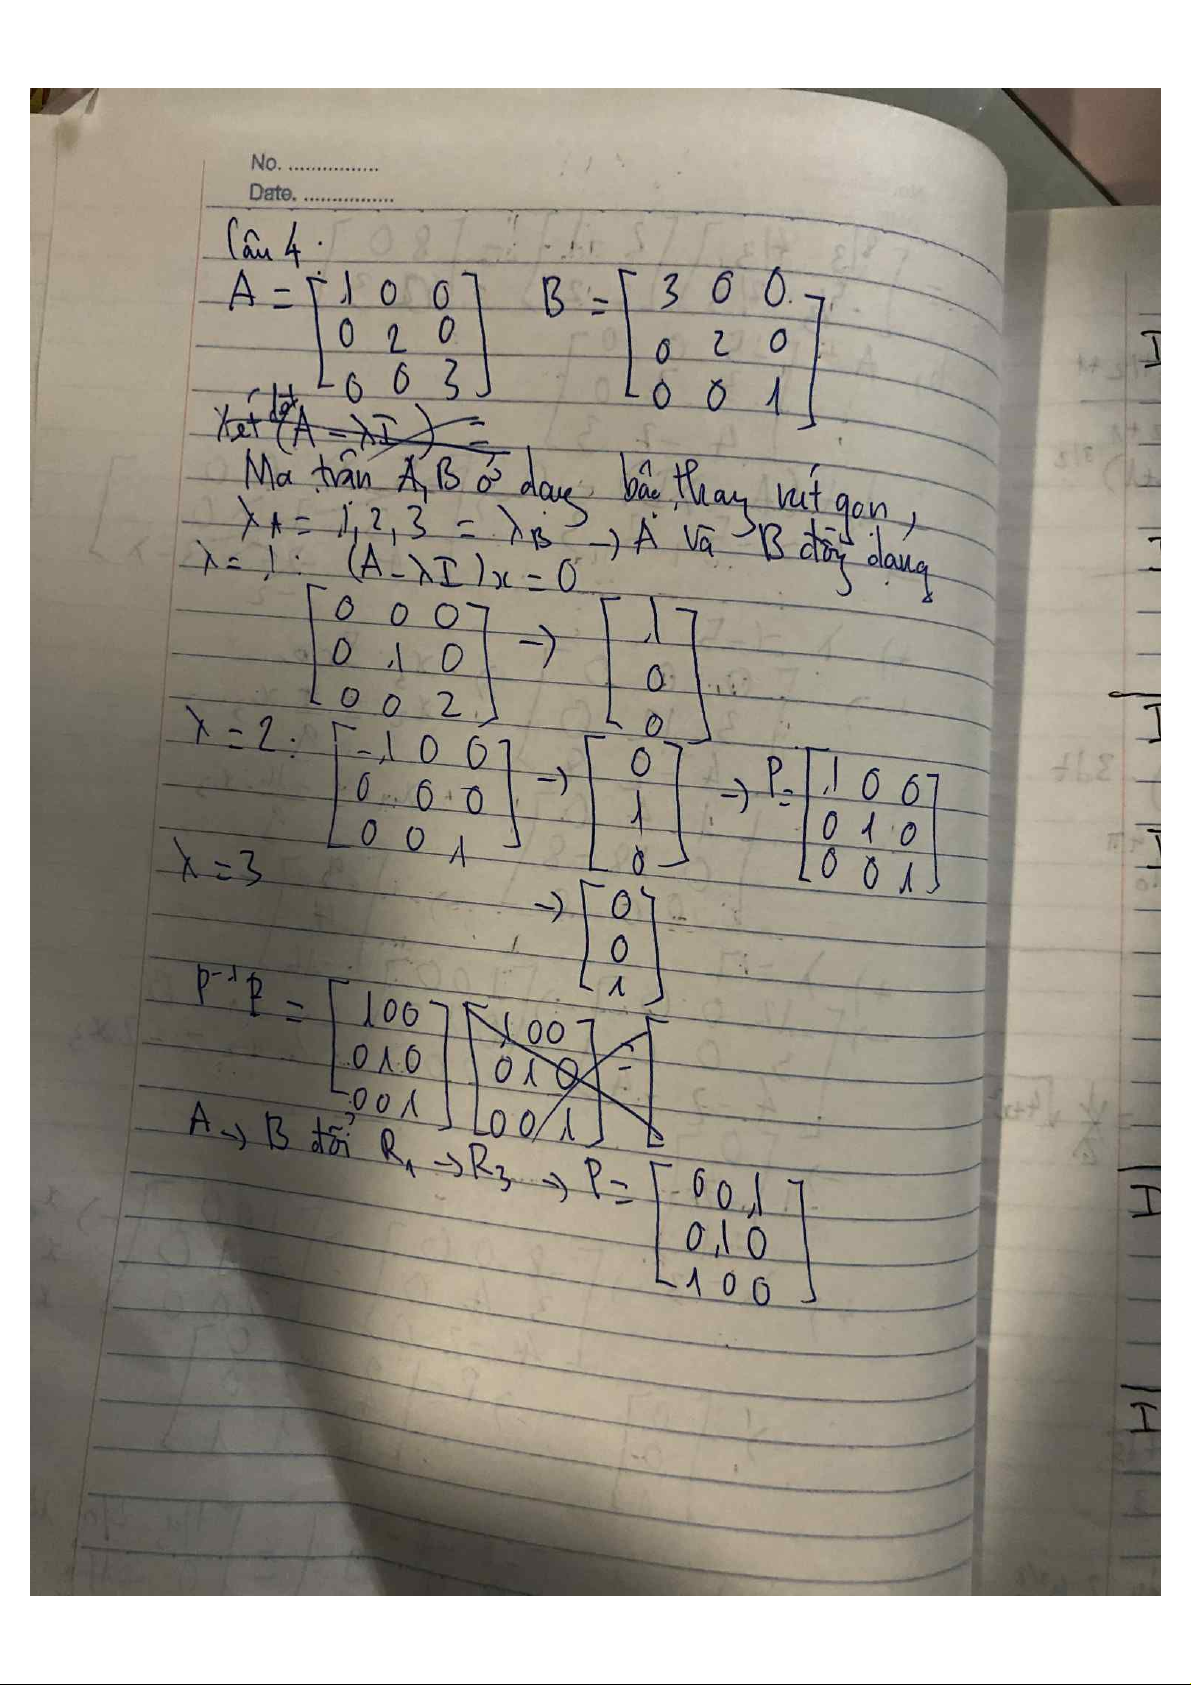 No. ................
Date. ................
Câu 4 :
A = [ 1 0 0 B = [ 3 0 0
0 2 0 0 2 0
0 0 3 ] 0 0 1 ]
Xét det (A - λI) =
Ma trận A, B ở dạng bậc thang rút gọn,
λA = 1, 2, 3 = λB → A và B đồng dạng
λ = 1 : (A - λI)x = 0
[ 0 0 0 → [ 1
0 1 0 0
0 0 2 ] 0 ]
λ = 2 : [ -1 0 0 → [ 0 → P = [ 1 0 0
0 0 0 1 0 1 0
0 0 1 ] 0 ] 0 0 1 ]
λ = 3 → [ 0
0
1 ]
P⁻¹P = [ 1 0 0 [ 1 0 0 = [
0 1 0 0 1 0
0 0 1 ] 0 0 1 ]
A → B đổi R1 → R3 → P = [ 0 0 1
0 1 0
1 0 0 ]